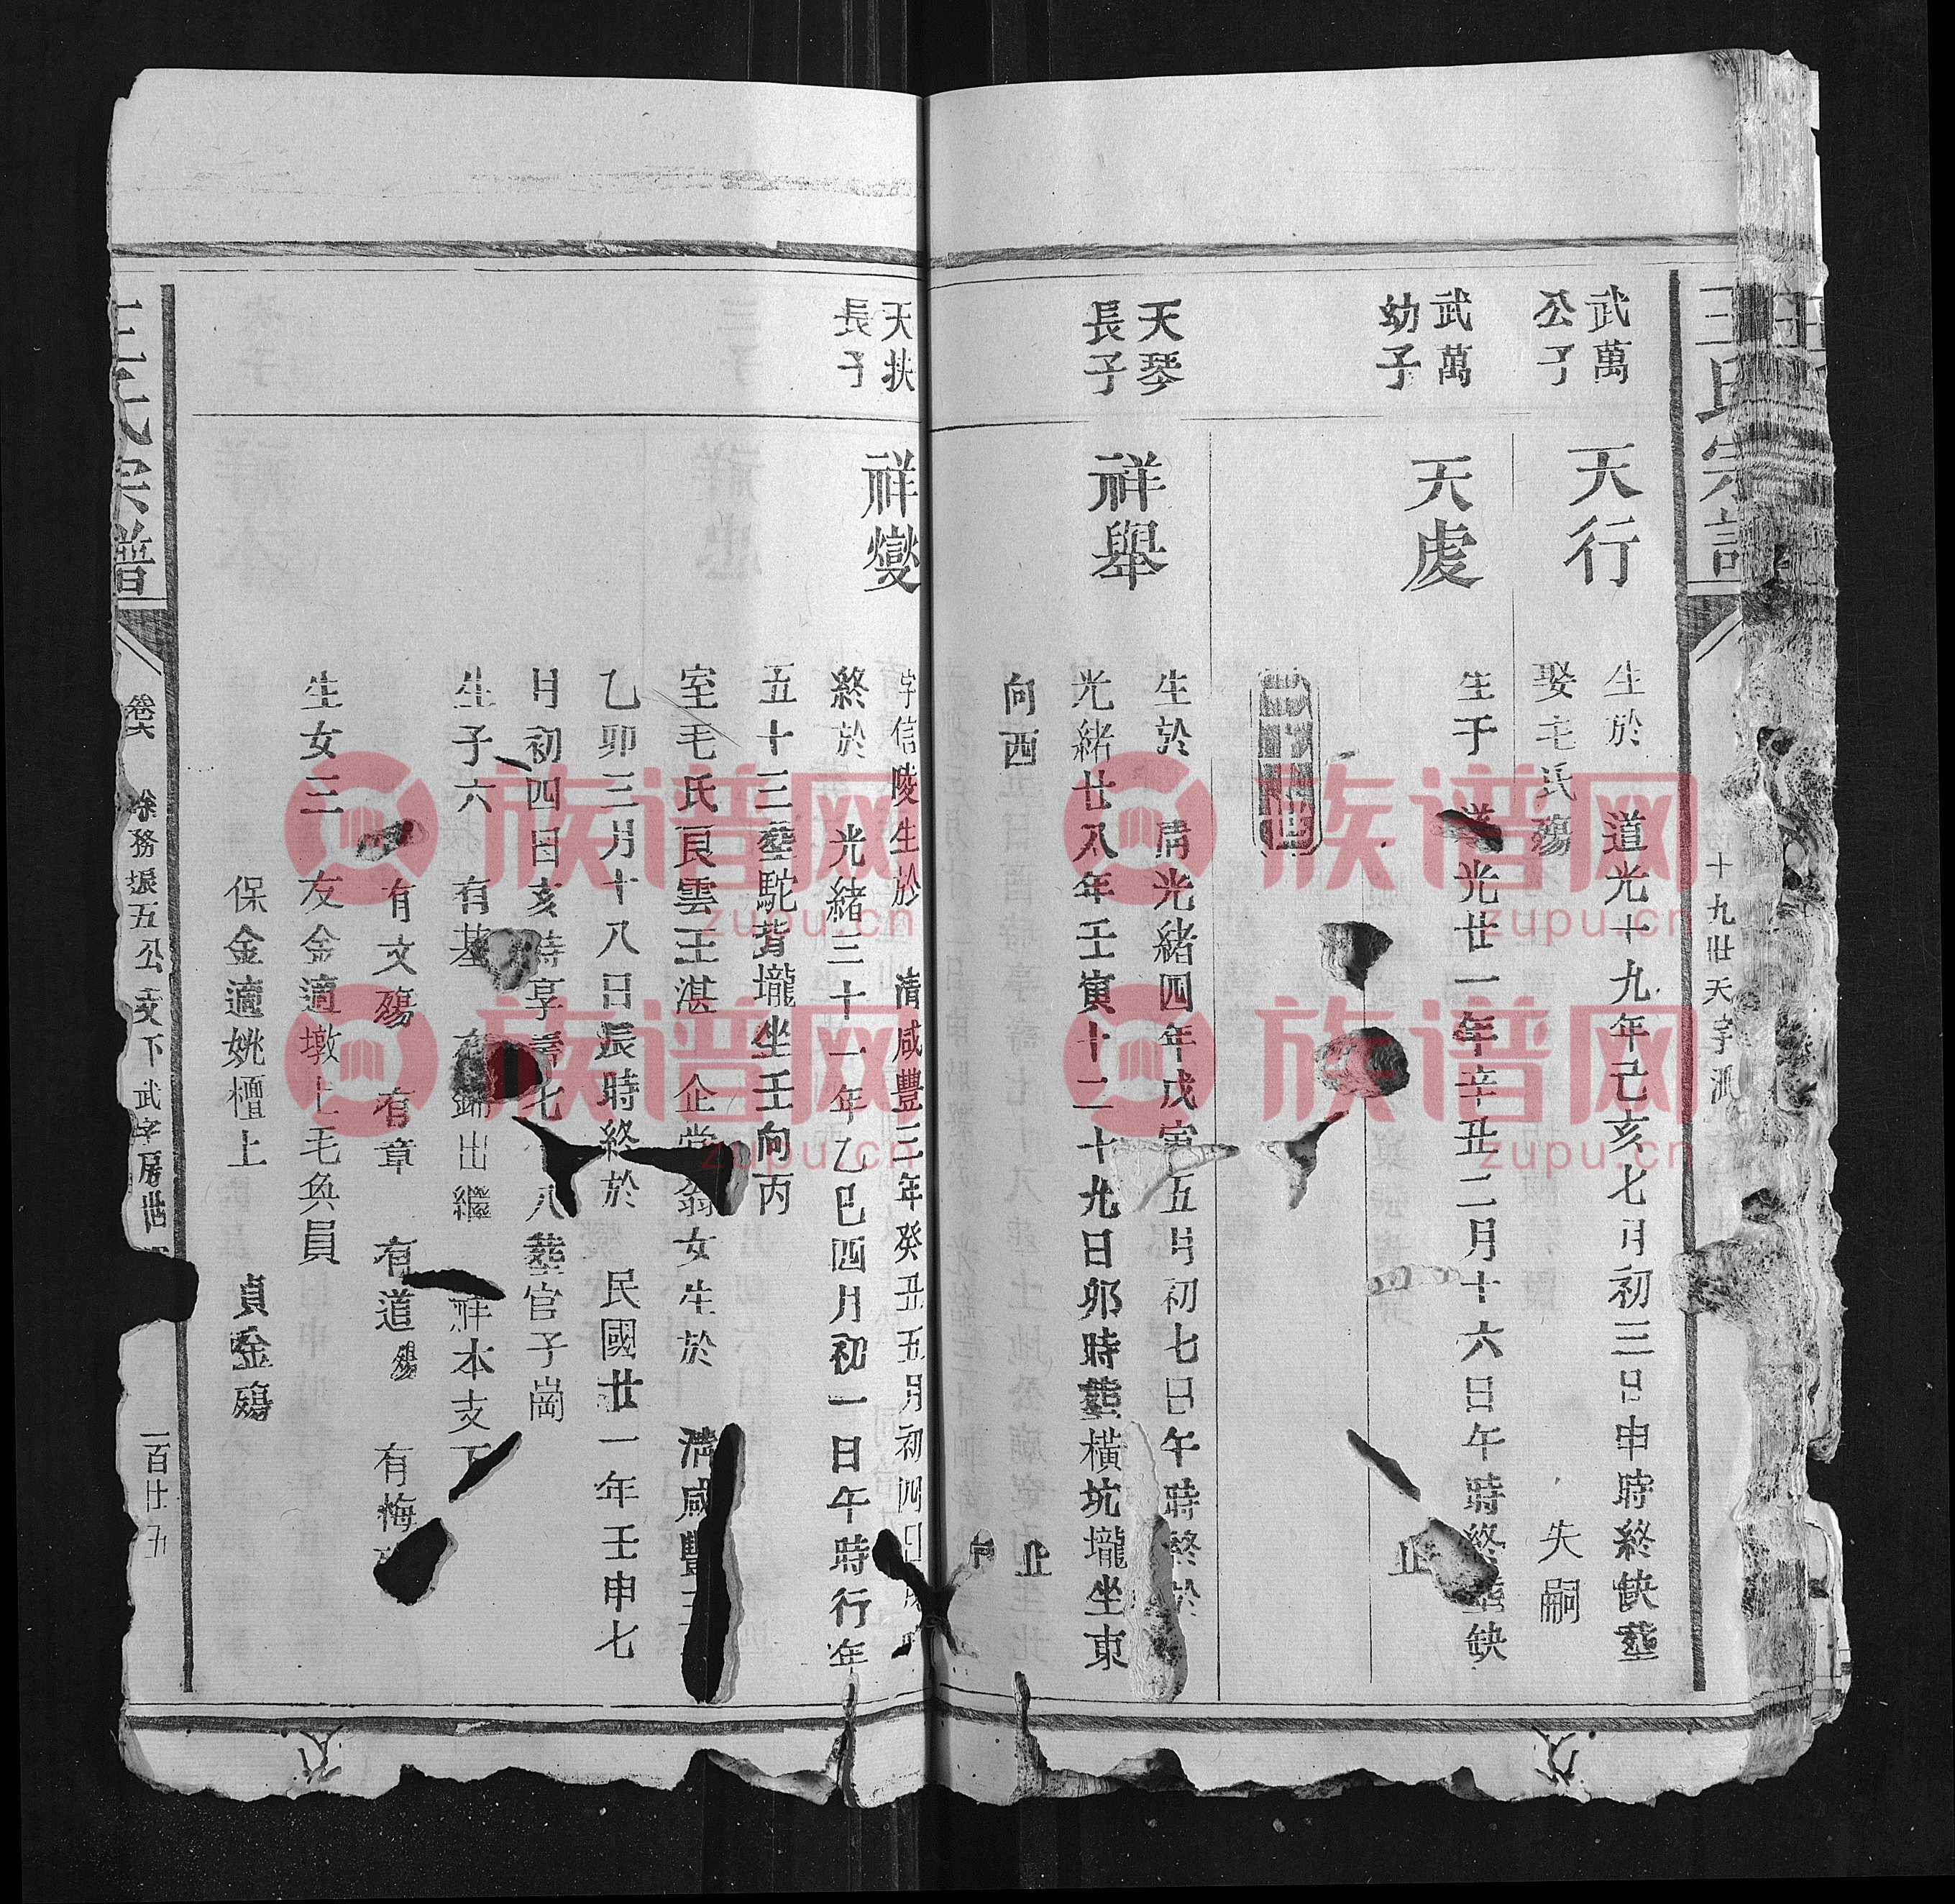 王氏宗譜
十九世天字派
武萬
公子
天行
生於 道光十九年己亥七月初三日申時終缺塟
娶毛氏殤 失嗣
武萬
幼子
天虔
生于 道光廿一年辛丑二月十六日午時終 塟缺
止
二十世
天琴
長子
祥舉
生於 清光緒四年戊寅五月初七日午時終於
光緒廿八年壬寅十二十九日卯時塟橫坑壠坐東
向西 止
天扶
長子
祥燮
字信陵生於 清咸豐三年癸丑五月初四日
終於 光緒三十一年乙巳四月初一日午時行年
五十三塟駝背壠坐壬向丙
室毛氏艮雲王湛 企堂翁女生於 清咸豐
乙卯三月十八日辰時終於 民國廿一年壬申七
月初四日亥時享壽七 八塟官子崗
生子六 有基 出繼 祥本支下
有文殤 有章 有道殤 有梅
生女三 友金適墩上毛奐員
保金適姚檀上 貞金殤
王氏宗譜
卷六 徐務振五公支下武字房世
一百廿五
族谱网
zupu.cn
族谱网
zupu.cn
族谱网
zupu.cn
族谱网
zupu.cn